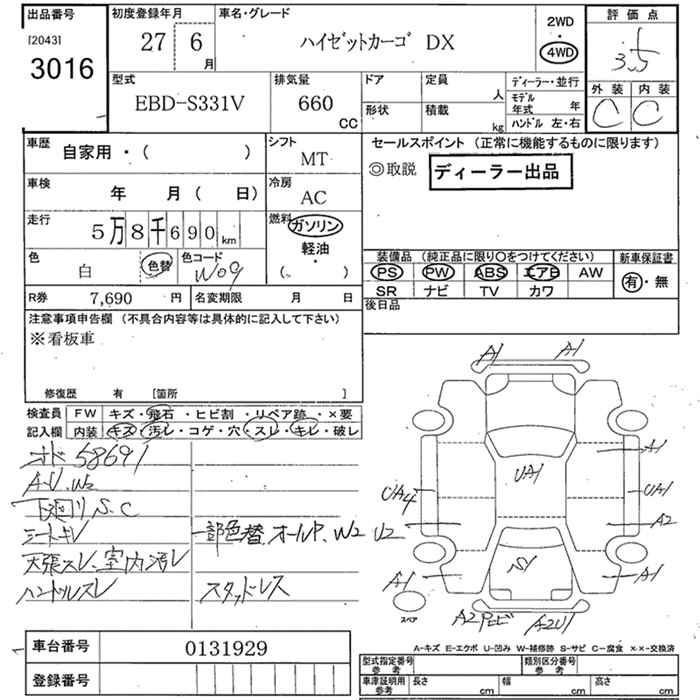 出品番号
[2043]
3016
初度登録年月
27 6 月
車名・グレード
ハイゼットカーゴ DX
2WD
4WD
評価点
3.5
外装 内装
C C
型式
EBD-S331V
排気量
660 CC
ドア
定員 人
形状
積載 kg
ディーラー・並行
モデル年式 年
ハンドル 左・右
車歴
自家用・( )
シフト
MT
車検
年 月 ( 日)
冷房
AC
走行
5万8千690 km
燃料
ガソリン
軽油
( )
色
白
色替
色コード
W09
R券 7,690 円
名変期限 月 日
セールスポイント (正常に機能するものに限ります)
◎取説 ディーラー出品
装備品 (純正品に限り○をつけてください)
PS PW ABS エアB AW
SR ナビ TV カワ
新車保証書
有・無
後日品
注意事項申告欄 (不具合内容等は具体的に記入して下さい)
※看板車
修復歴 有 [箇所 ]
検査員
記入欄
FW キズ・飛石・ヒビ割・リペア跡・×要
内装 キズ・汚レ・コゲ・穴・スレ・キレ・破レ
58691
A・U・W2
下廻りS.C
シートキレ
天張スレ、室内汚レ
ハンドルスレ
一部色替、オールP、W2 U2
スタッドレス
A1 A1
UA1
A1
UA4
UA1
A2
S1
A1
A1
スペア
A2 A2U1
A-キズ E-エクボ U-凹み W-補修跡 S-サビ C-腐食 ××-交換済
車台番号 0131929
登録番号
型式指定番号
参考
類別区分番号
参考
車庫証明用
参考
長さ cm
幅 cm
高さ cm